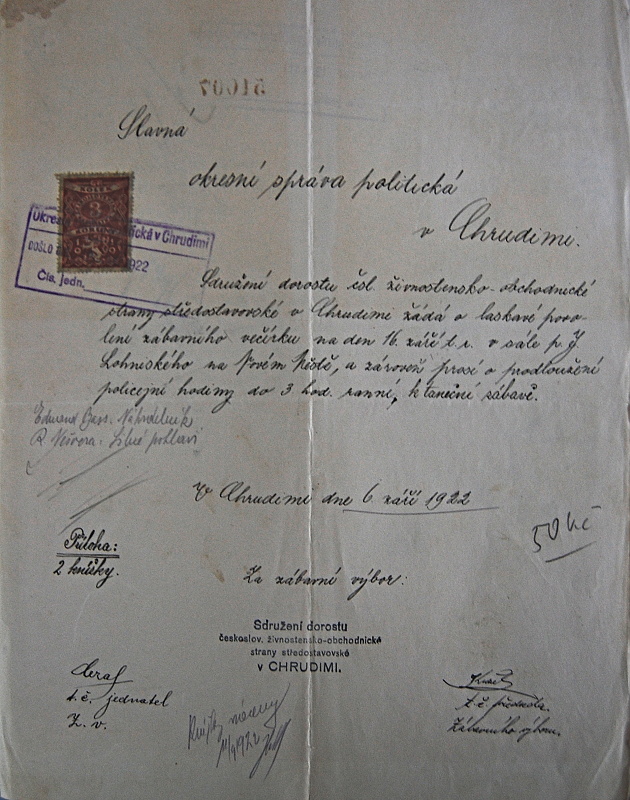 51007
Slavná
okresní správa politická
v Chrudimi.
KOLEK
3
KORUN
Okres ická v Chrudimi
DOŠLO 1922
Čís. jedn.
Sdružení dorostu čsl. živnostensko-obchodnické
strany středostavovské v Chrudimi žádá o laskavé povo-
lení zábavního večírku na den 16. září t. r. v sále p. J.
Lohniského na Novém Městě, a zároveň prosí o prodloužení
policejní hodiny do 3 hod. ranní, k taneční zábavě.
Edmond Náhrdelník
R. Silné pohlaví
V Chrudimi dne 6. září 1922
50 Kč
Příloha:
2 knížky.
Za zábavní výbor:
Sdružení dorostu
českoslov. živnostensko-obchodnické
strany středostavovské
v CHRUDIMI.
t. č. jednatel
Z. v.
t. č. předseda
Zábavního výboru.
1922